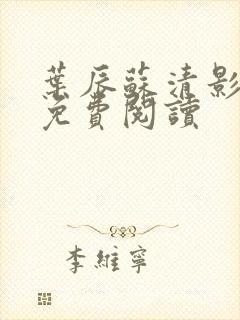 葉辰蘇清影
免費閱讀
李維寧